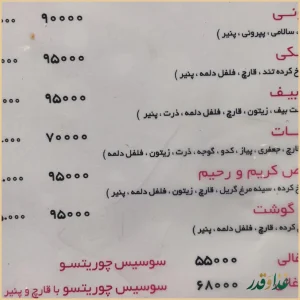 ۹۰۰۰۰
سالامی ، پپرونی ، پنیر )
۹۵۰۰۰
کرده تند ، قارچ ، فلفل دلمه ، پنیر )
بیف ۹۵۰۰۰
بیف ، زیتون ، قارچ ، فلفل دلمه ، ذرت ، پنیر )
۷۰۰۰۰
قارچ ، جعفری ، پیاز ، کدو ، گوجه ، ذرت ، زیتون ، فلفل دلمه )
کریم و رحیم ۹۵۰۰۰
کرده ، سینه مرغ گریل ، قارچ ، زیتون ، فلفل دلمه ، پنیر )
گوشت ۹۵۰۰۰
کرده ، قارچ ، فلفل دلمه ، پنیر )
۵۵۰۰۰ سوسیس چوریتسو
۶۸۰۰۰ سوسیس چوریتسو با قارچ و پنیر